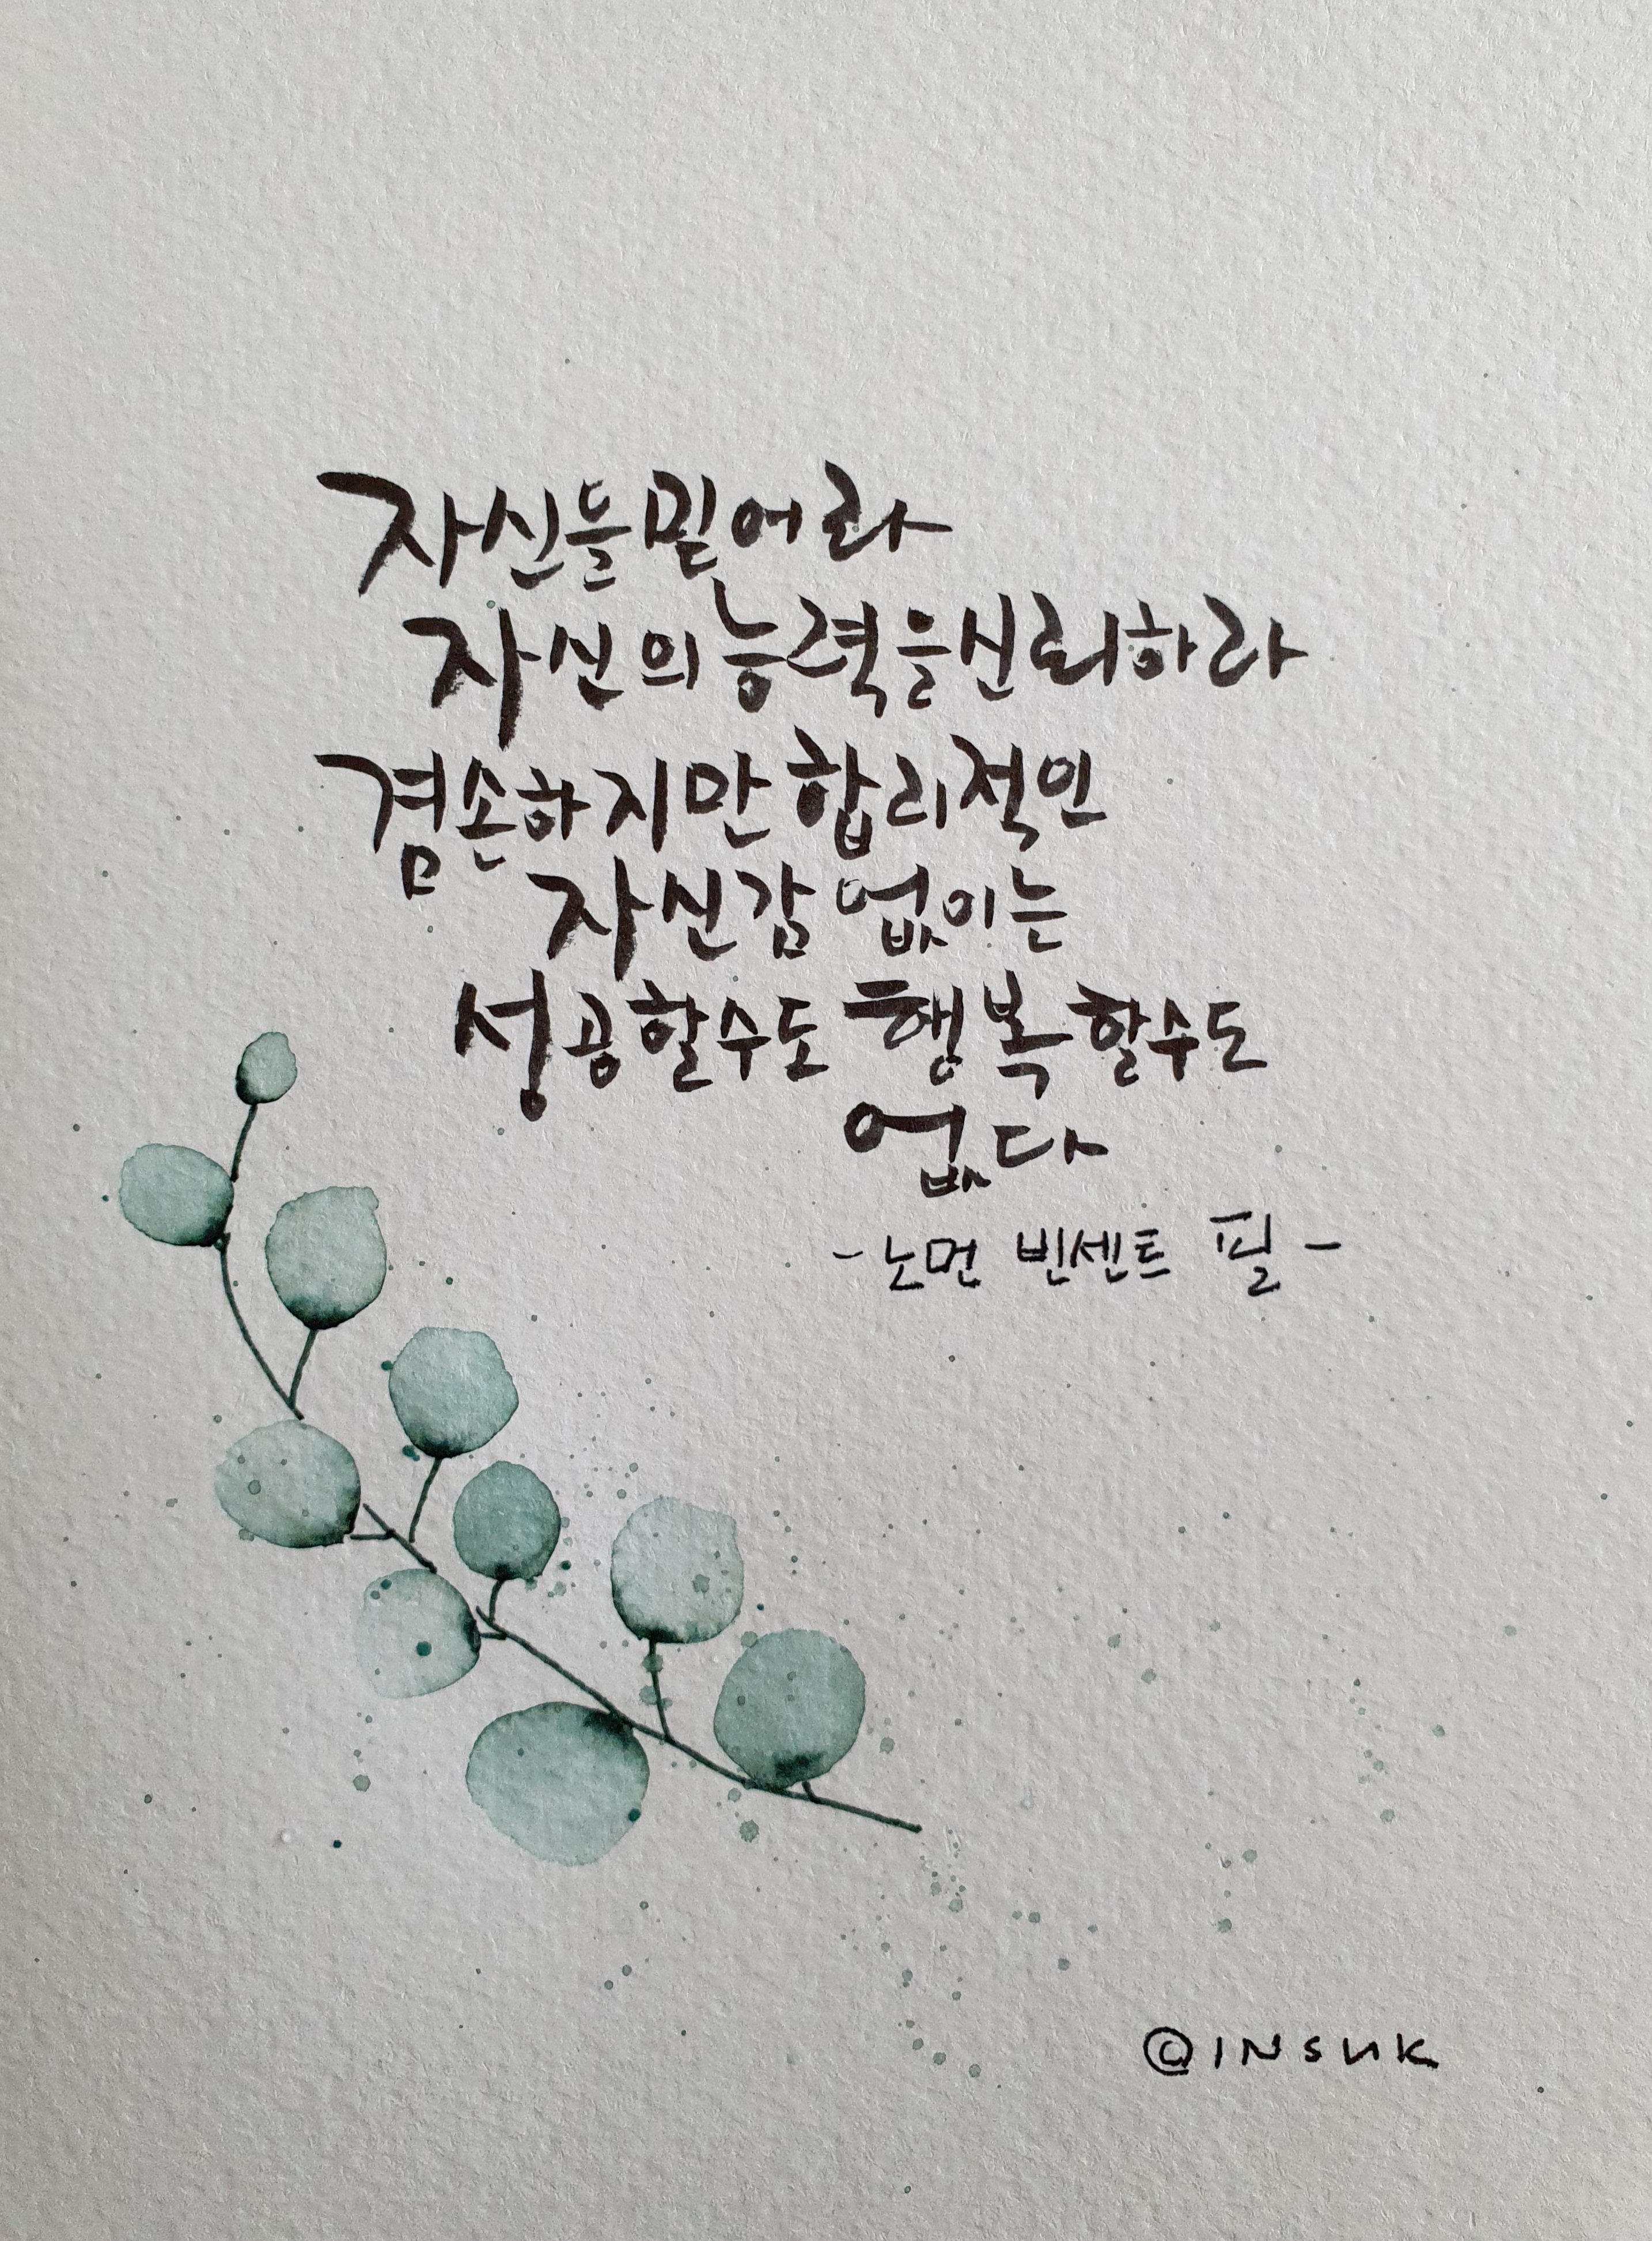 자신을 믿어라
자신의 능력을 신뢰하라
겸손하지만 합리적인
자신감 없이는
성공할수도 행복할수도
없다
- 노먼 빈센트 필 -
©INSUK